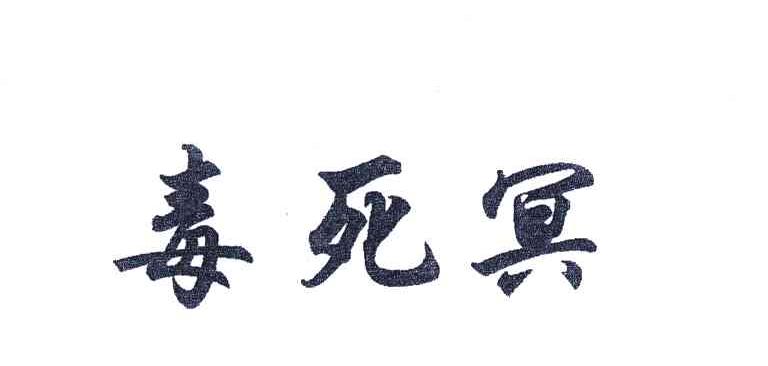 毒死冥